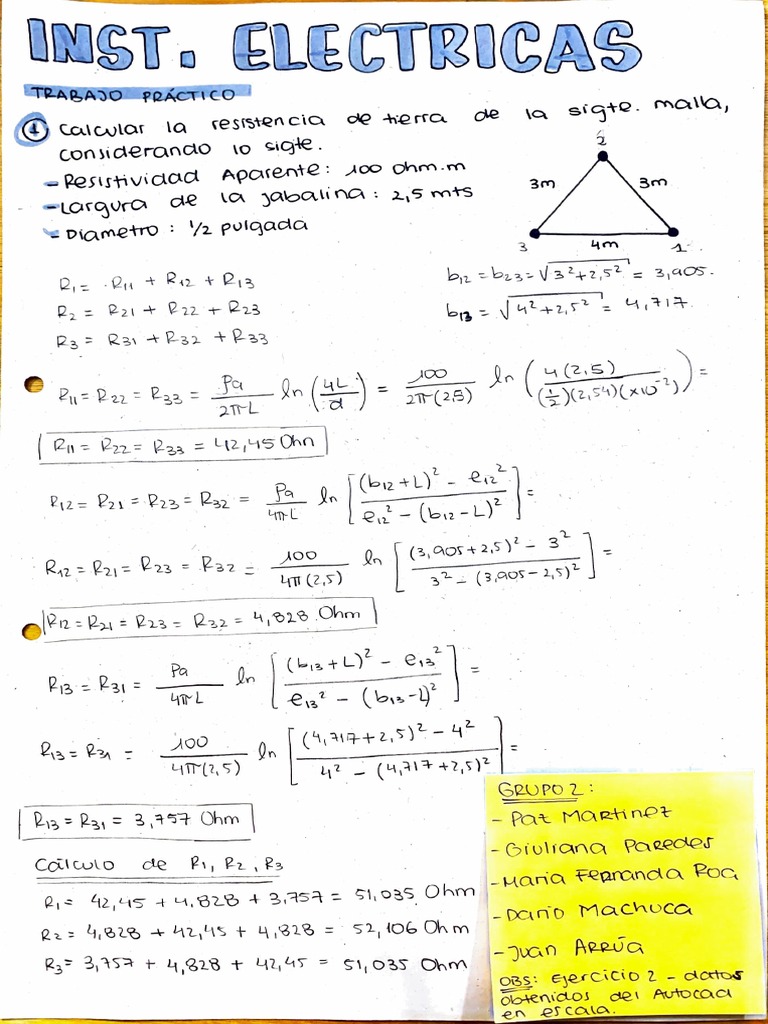 INST. ELECTRICAS
TRABAJO PRÁCTICO
① Calcular la resistencia de tierra de la sigte. malla,
considerando lo sigte.
- Resistividad Aparente: 100 ohm.m
- Largura de la jabalina: 2,5 mts
- Diametro: 1/2 pulgada
2
3m 3m
3 4m 1
R₁ = R₁₁ + R₁₂ + R₁₃
R₂ = R₂₁ + R₂₂ + R₂₃
R₃ = R₃₁ + R₃₂ + R₃₃
b₁₂ = b₂₃ = √(3² + 2,5²) = 3,905.
b₁₃ = √(4² + 2,5²) = 4,717.
R₁₁ = R₂₂ = R₃₃ = ρa/2πL ln (4L/d) = 100/2π(2,5) ln (4(2,5)/(1/2)(2,54)(×10⁻²)) =
R₁₁ = R₂₂ = R₃₃ = 42,45 Ohn
R₁₂ = R₂₁ = R₂₃ = R₃₂ = ρa/4πL ln [(b₁₂ + L)² - e₁₂²/e₁₂² - (b₁₂ - L)²] =
R₁₂ = R₂₁ = R₂₃ = R₃₂ = 100/4π(2,5) ln [(3,905 + 2,5)² - 3²/3² - (3,905 - 2,5)²] =
R₁₂ = R₂₁ = R₂₃ = R₃₂ = 4,828 Ohm
R₁₃ = R₃₁ = ρa/4πL ln [(b₁₃ + L)² - e₁₃²/e₁₃² - (b₁₃ - L)²] =
R₁₃ = R₃₁ = 100/4π(2,5) ln [(4,717 + 2,5)² - 4²/4² - (4,717 + 2,5)²] =
R₁₃ = R₃₁ = 3,757 Ohm
Cálculo de R₁, R₂, R₃
R₁ = 42,45 + 4,828 + 3,757 = 51,035 Ohm
R₂ = 4,828 + 42,45 + 4,828 = 52,106 Ohm
R₃ = 3,757 + 4,828 + 42,45 = 51,035 Ohm
GRUPO 2:
- Paz Martinez
- Giuliana Paredes
- Maria Fernanda Roa
- Dario Machuca
- Juan Arrúa
OBS: Ejercicio 2 - datos
obtenidos del Autocad
en escala.